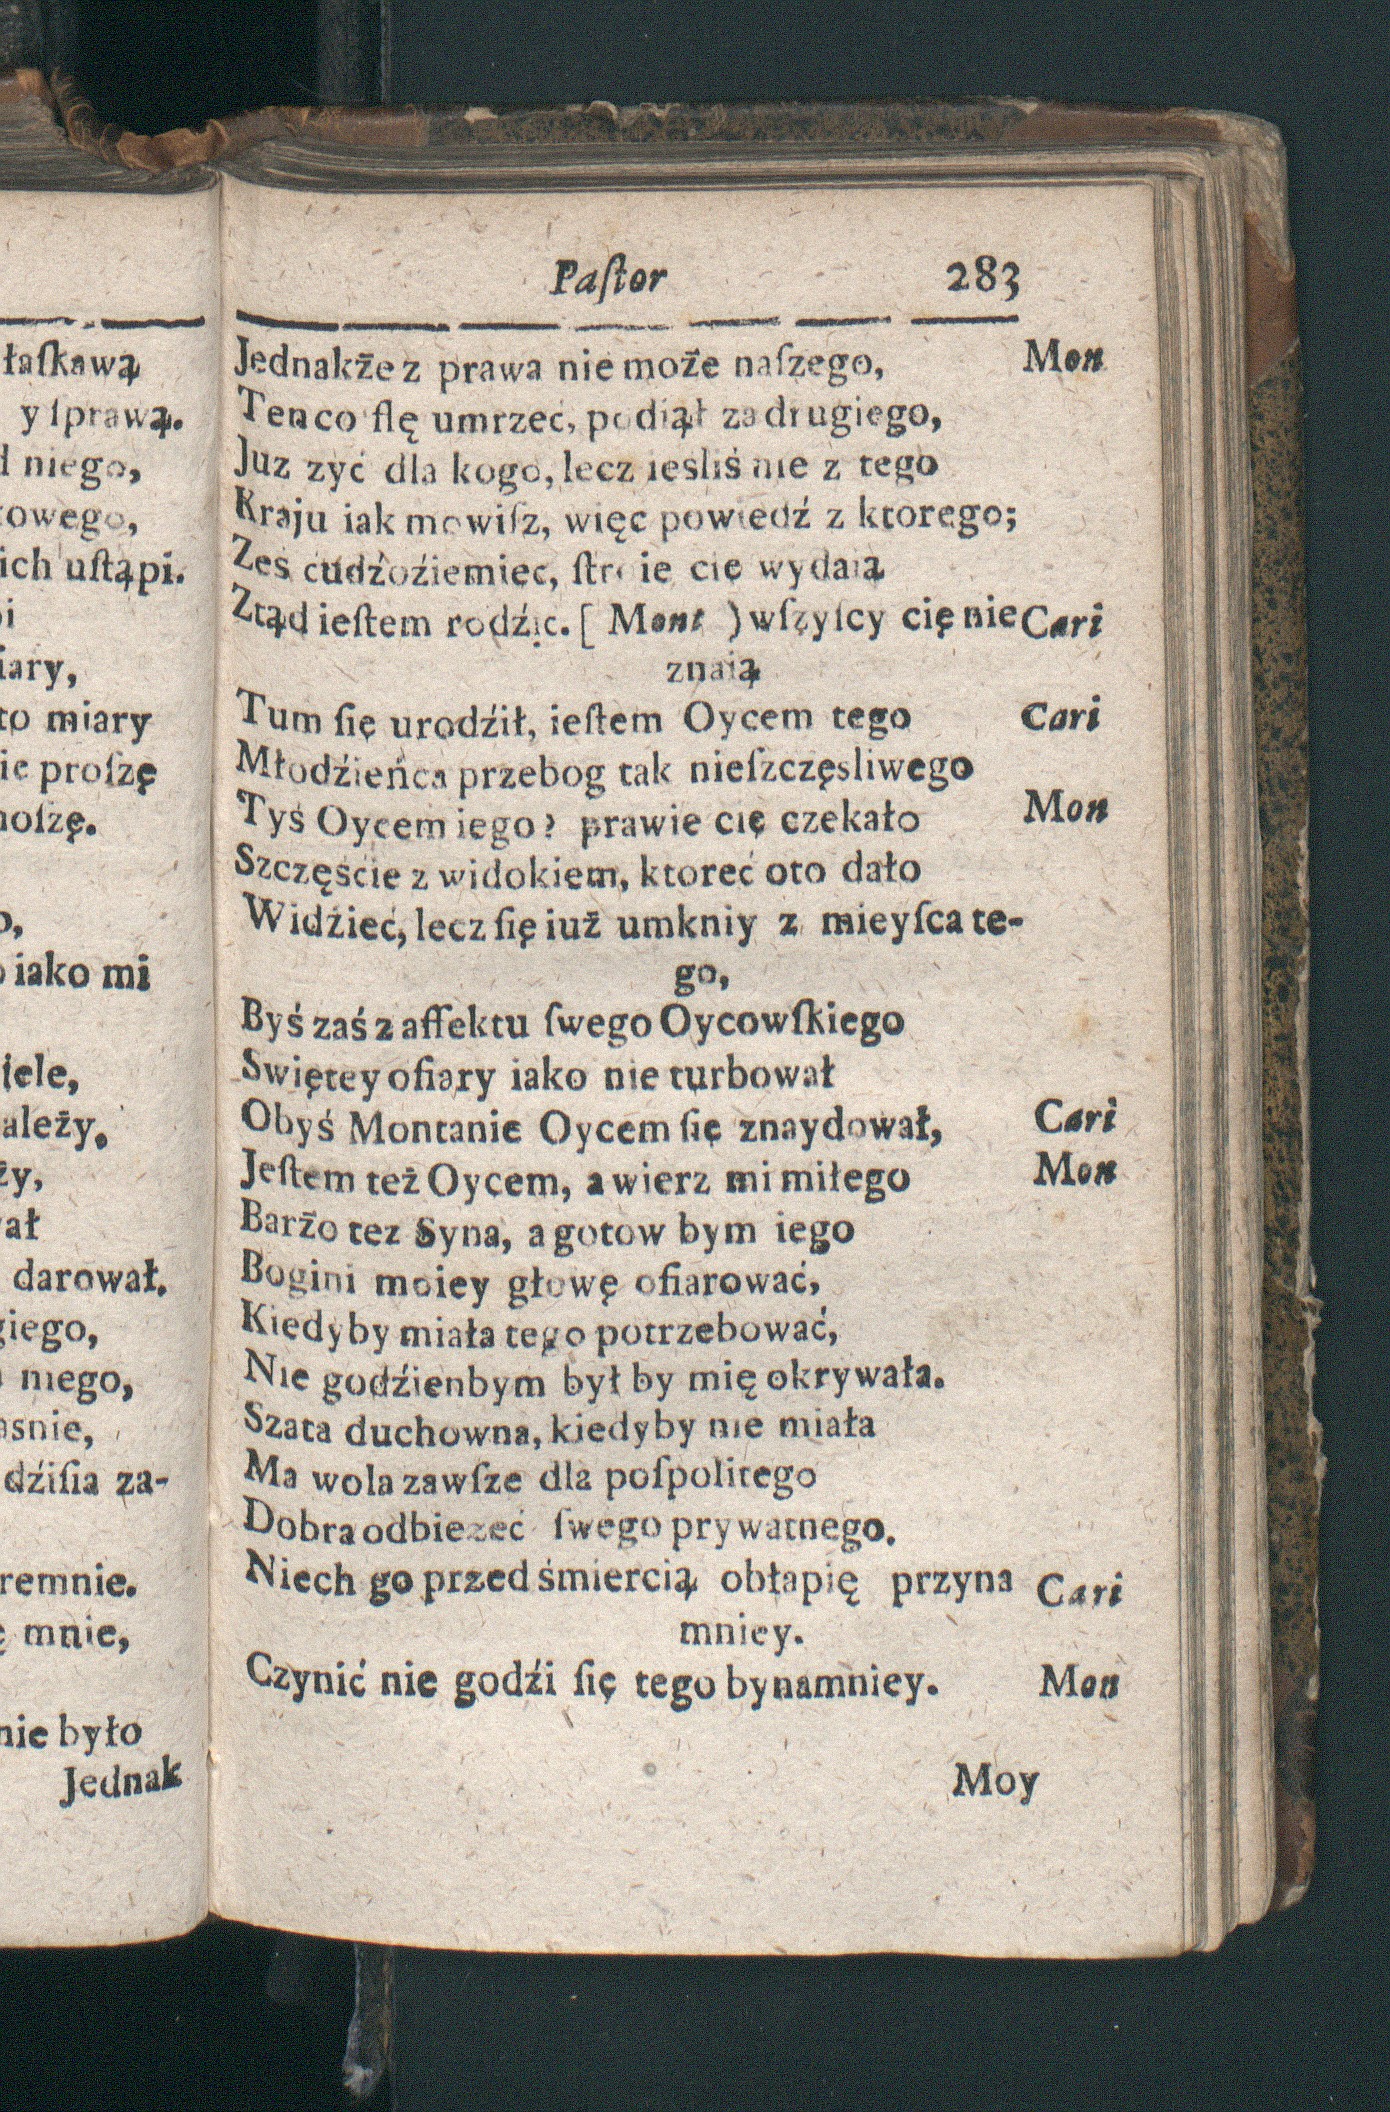 łaſkawą
y ſprawą.
niego,
towego,
ich uſtąpi.
iary,
to miary
ie proſzę
noſzę.
iako mi
iele,
ależy.
ży,
ał
darował.
giego,
niego,
asnie,
dźiſia za-
remnie.
mnie,
nie było
Jednak
Paſtor 283
Jednakże z prawa nie może naſzego, Mon
Ten co ſię umrzeć, podiął za drugiego,
Juz zyć dla kogo, lecz ieśliś nie z tego
Kraju iak mowiſz, więc powiedź z ktorego;
Ześ cudźoźiemiec, ſtroie cię wydaią
Ztąd ieſtem rodźic. [ Mont ) wſzyſcy cię nie Cari
znaią
Tum ſię urodźił, ieſtem Oycem tego Cari
Młodźieńca przebog tak nieſzczęsliwego
Tyś Oycem iego? prawie cię czekało Mon
Szczęście z widokiem, ktoreć oto dało
Widźieć, lecz ſię iuż umkniy z mieyſca te-
go,
Byś zaś z affektu ſwego Oycowſkiego
Swiętey ofiary iako nie turbował
Obyś Montanie Oycem ſię znaydował, Cari
Jeſtem też Oycem, a wierz mi miłego Mon
Barżo tez Syna, a gotow bym iego
Bogini moiey głowę ofiarować,
Kiedyby miała tego potrzebować,
Nie godźienbym był by mię okrywała.
Szata duchowna, kiedyby nie miała
Ma wola zawſze dla poſpolitego
Dobra odbiezeć ſwego prywatnego.
Niech go przed śmiercią obłapię przyna Cari
mniey.
Czynić nie godźi ſię tego bynamniey. Mon
Moy